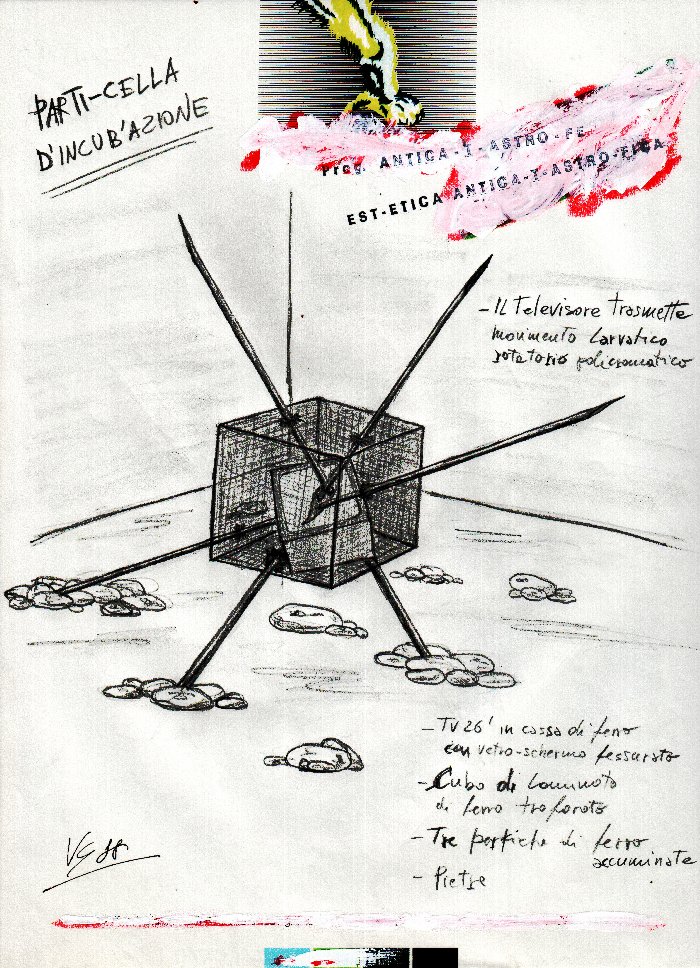 PARTI-CELLA
D'INCUB'AZIONE
Prog. ANTICA-T-ASTRO-FE
EST-ETICA ANTICA-T-ASTRO-FICA
- IL Televisore trasmette
movimento Larvatico
rotatorio policromatico
- TV 26' in cassa di ferro
con vetro-schermo fessurato
- Cubo di Laminato
di ferro traforato
- Tre pertiche di ferro
accuminate
- Pietre
VG 88